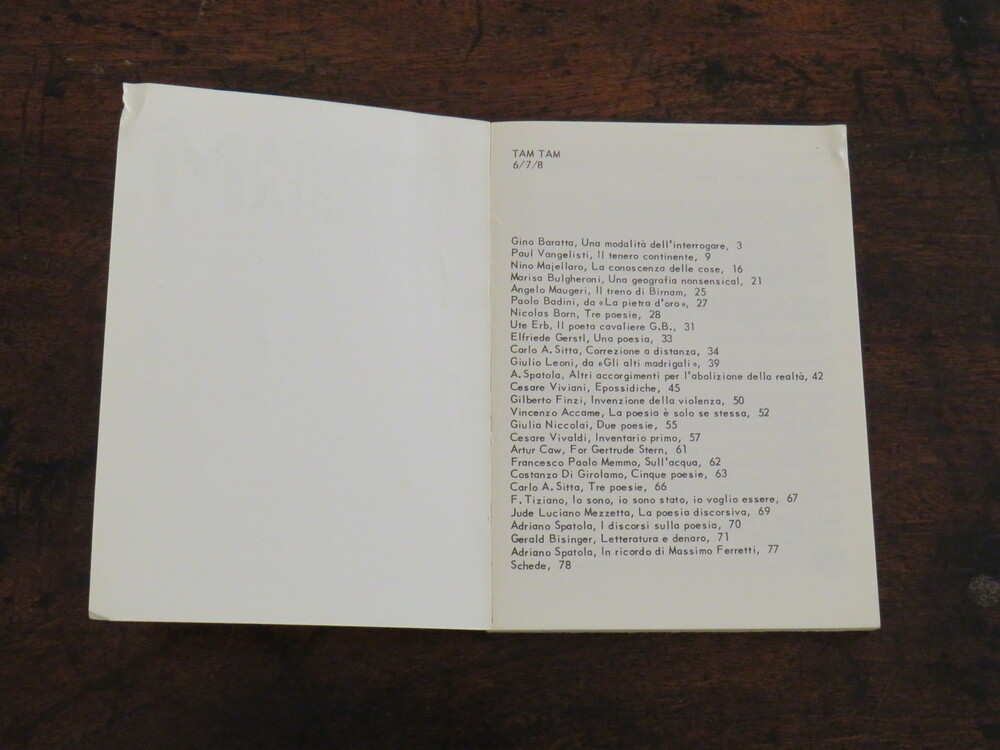 TAM TAM
6/7/8
Gino Baratta, Una modalità dell'interrogare, 3
Paul Vangelisti, Il tenero continente, 9
Nino Majellaro, La conoscenza delle cose, 16
Marisa Bulgheroni, Una geografia nonsensical, 21
Angelo Maugeri, Il treno di Birnam, 25
Paolo Badini, da «La pietra d'oro», 27
Nicolas Born, Tre poesie, 28
Ute Erb, Il poeta cavaliere G.B., 31
Elfriede Gerstl, Una poesia, 33
Carlo A. Sitta, Correzione a distanza, 34
Giulio Leoni, da «Gli alti madrigali», 39
A. Spatola, Altri accorgimenti per l'abolizione della realtà, 42
Cesare Viviani, Epossidiche, 45
Gilberto Finzi, Invenzione della violenza, 50
Vincenzo Accame, La poesia è solo se stessa, 52
Giulia Niccolai, Due poesie, 55
Cesare Vivaldi, Inventario primo, 57
Artur Caw, For Gertrude Stern, 61
Francesco Paolo Memmo, Sull'acqua, 62
Costanzo Di Girolamo, Cinque poesie, 63
Carlo A. Sitta, Tre poesie, 66
F. Tiziano, Io sono, io sono stato, io voglio essere, 67
Jude Luciano Mezzetta, La poesia discorsiva, 69
Adriano Spatola, I discorsi sulla poesia, 70
Gerald Bisinger, Letteratura e denaro, 71
Adriano Spatola, In ricordo di Massimo Ferretti, 77
Schede, 78